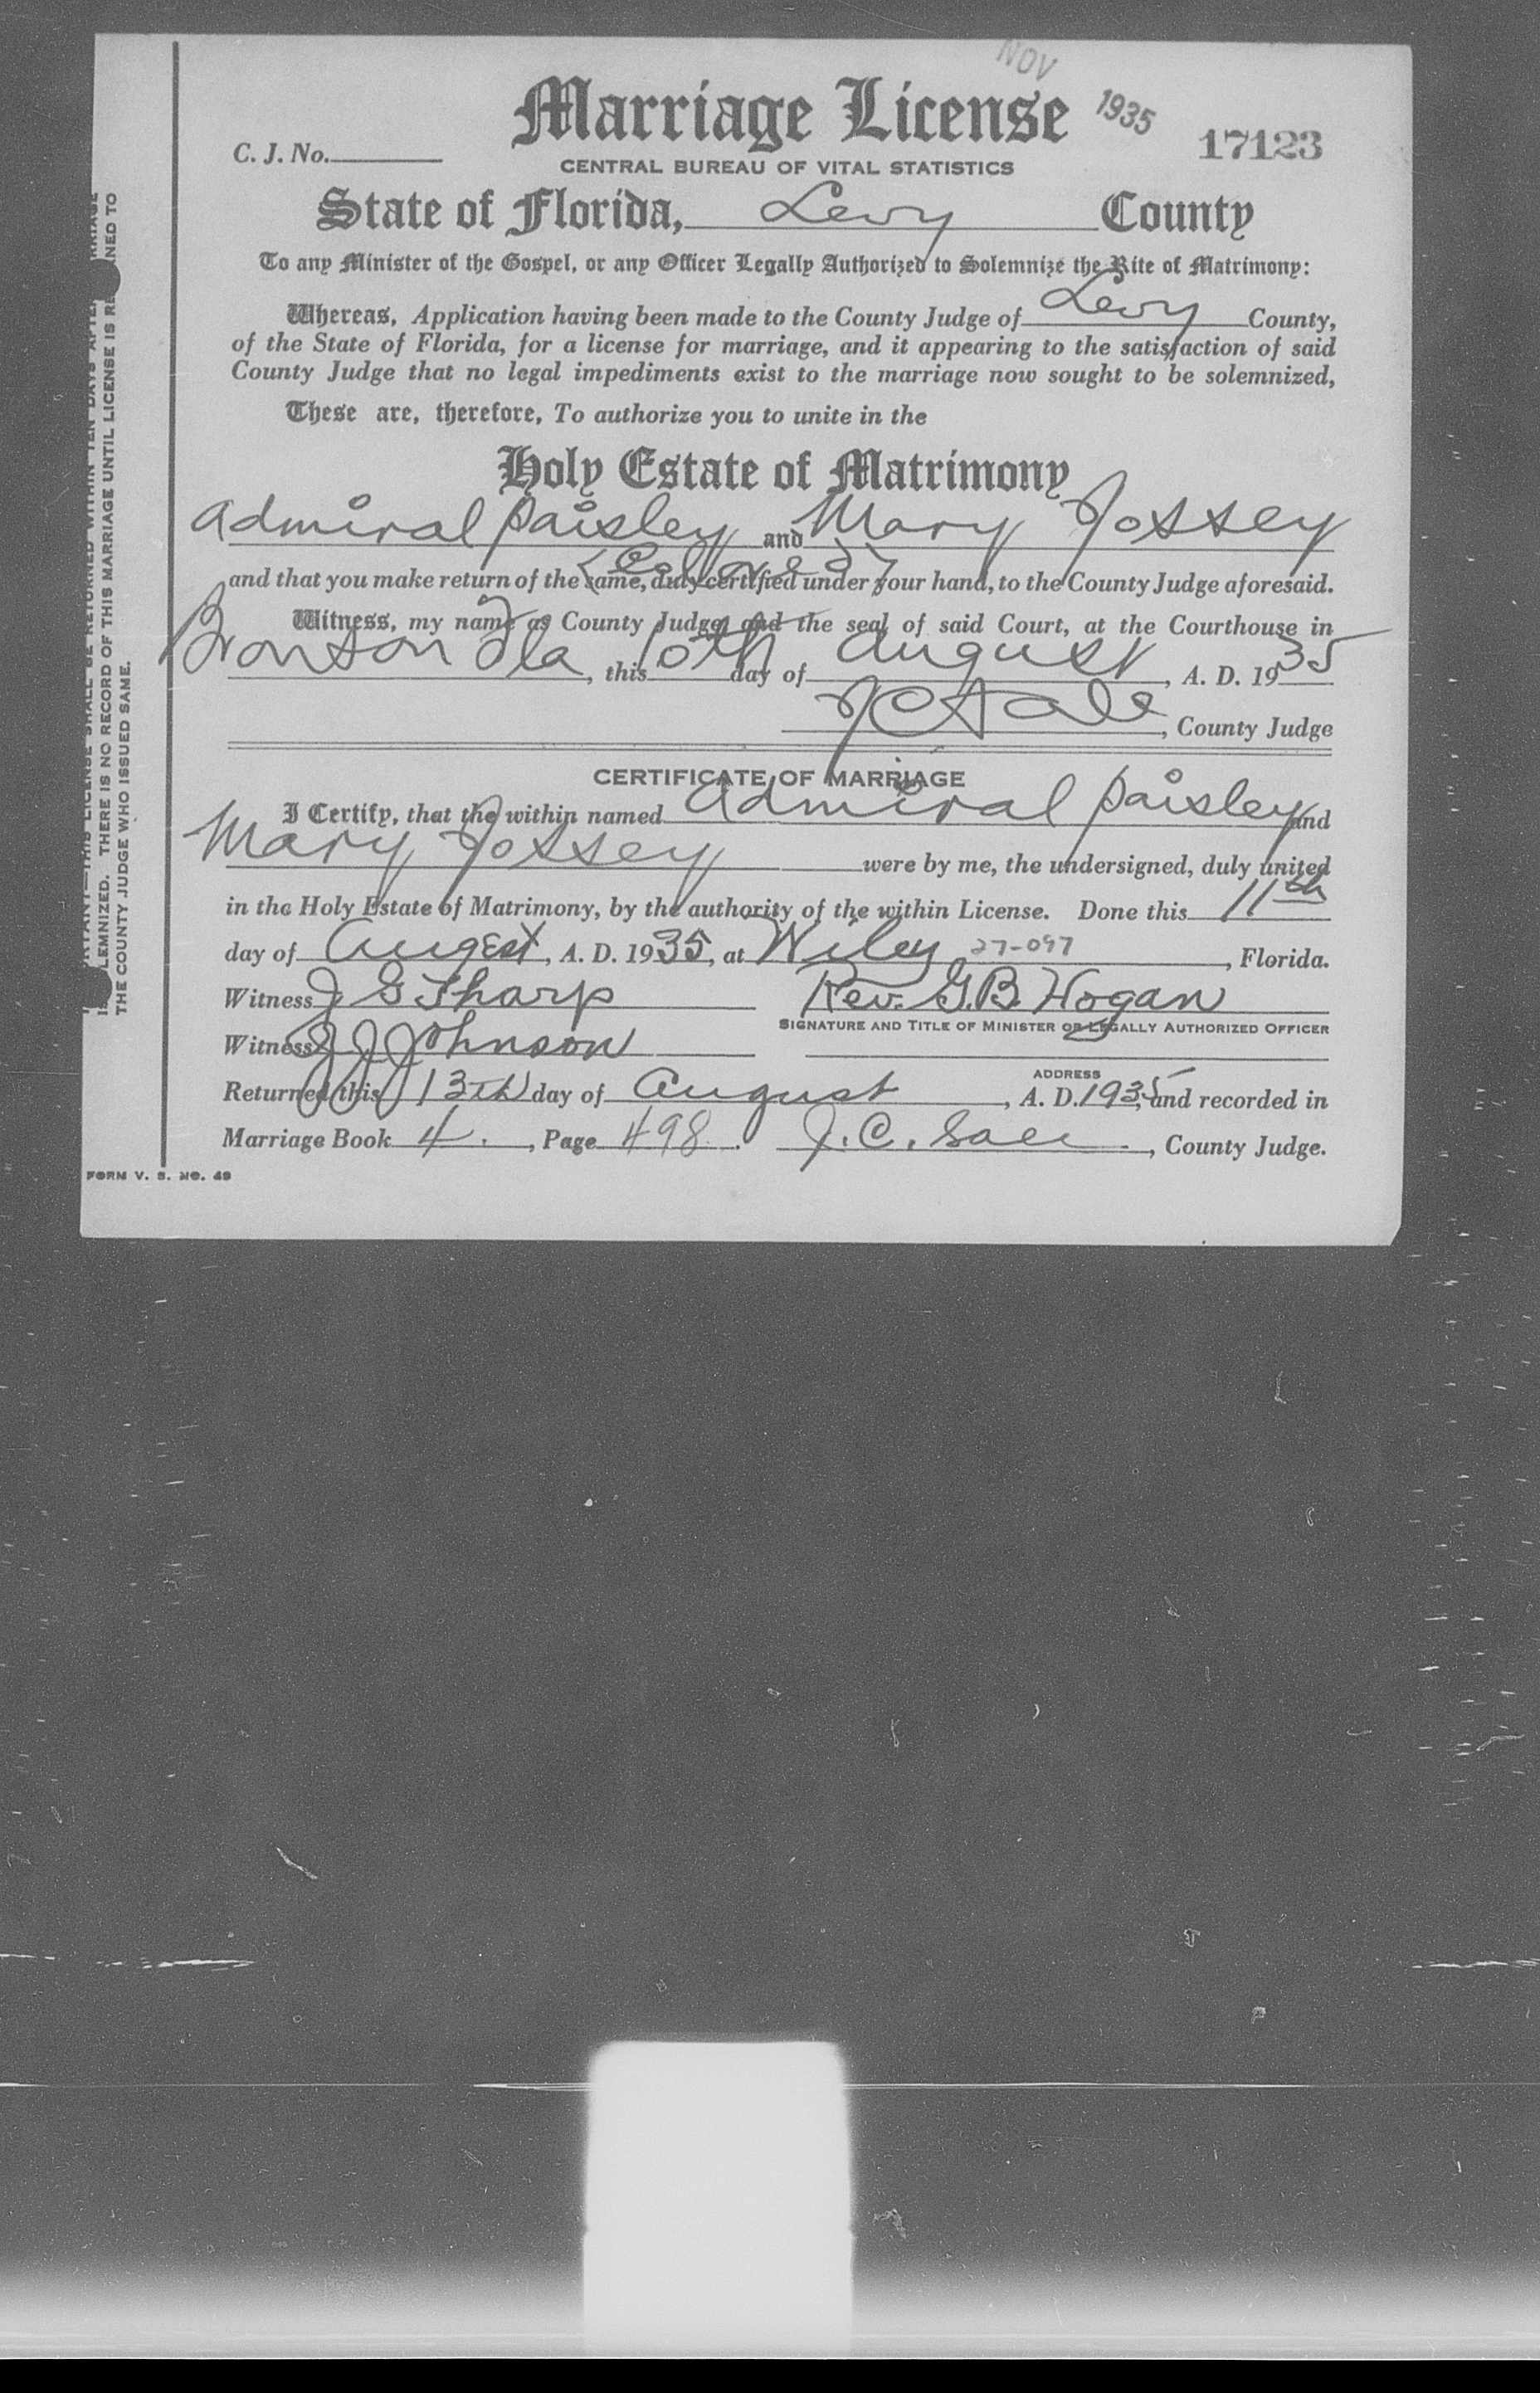 NOV
1935
Marriage License
17123
C. J. No.
CENTRAL BUREAU OF VITAL STATISTICS
State of Florida, Levy County
To any Minister of the Gospel, or any Officer Legally Authorized to Solemnize the Rite of Matrimony:
Whereas, Application having been made to the County Judge of Levy County,
of the State of Florida, for a license for marriage, and it appearing to the satisfaction of said
County Judge that no legal impediments exist to the marriage now sought to be solemnized,
These are, therefore, To authorize you to unite in the
Holy Estate of Matrimony
Admiral Paisley and Mary Jossey
(Colored)
and that you make return of the same, duly certified under your hand, to the County Judge aforesaid.
Witness, my name as County Judge, and the seal of said Court, at the Courthouse in
Bronson Fla, this 10th day of August, A. D. 1935
County Judge
CERTIFICATE OF MARRIAGE
I Certify, that the within named Admiral Paisley and
Mary Jossey were by me, the undersigned, duly united
in the Holy Estate of Matrimony, by the authority of the within License. Done this 11th
day of Augest, A. D. 1935, at Wiley 27-097, Florida.
Witness J G Tharp Rev. G.B. Hogan
SIGNATURE AND TITLE OF MINISTER OR LEGALLY AUTHORIZED OFFICER
Witness J J Johnson
ADDRESS
Returned this 13th day of August, A. D. 1935, and recorded in
Marriage Book 4., Page 498. J. C. Sale, County Judge.
FORM V. S. NO. 49
THIS LICENSE SHALL BE RETURNED WITHIN TEN DAYS AFTER
LEMNIZED. THERE IS NO RECORD OF THIS MARRIAGE UNTIL LICENSE IS RE NED TO
THE COUNTY JUDGE WHO ISSUED SAME.